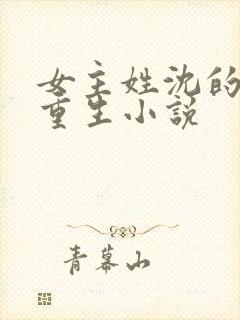 女主姓沈的
重生小说
青幕山